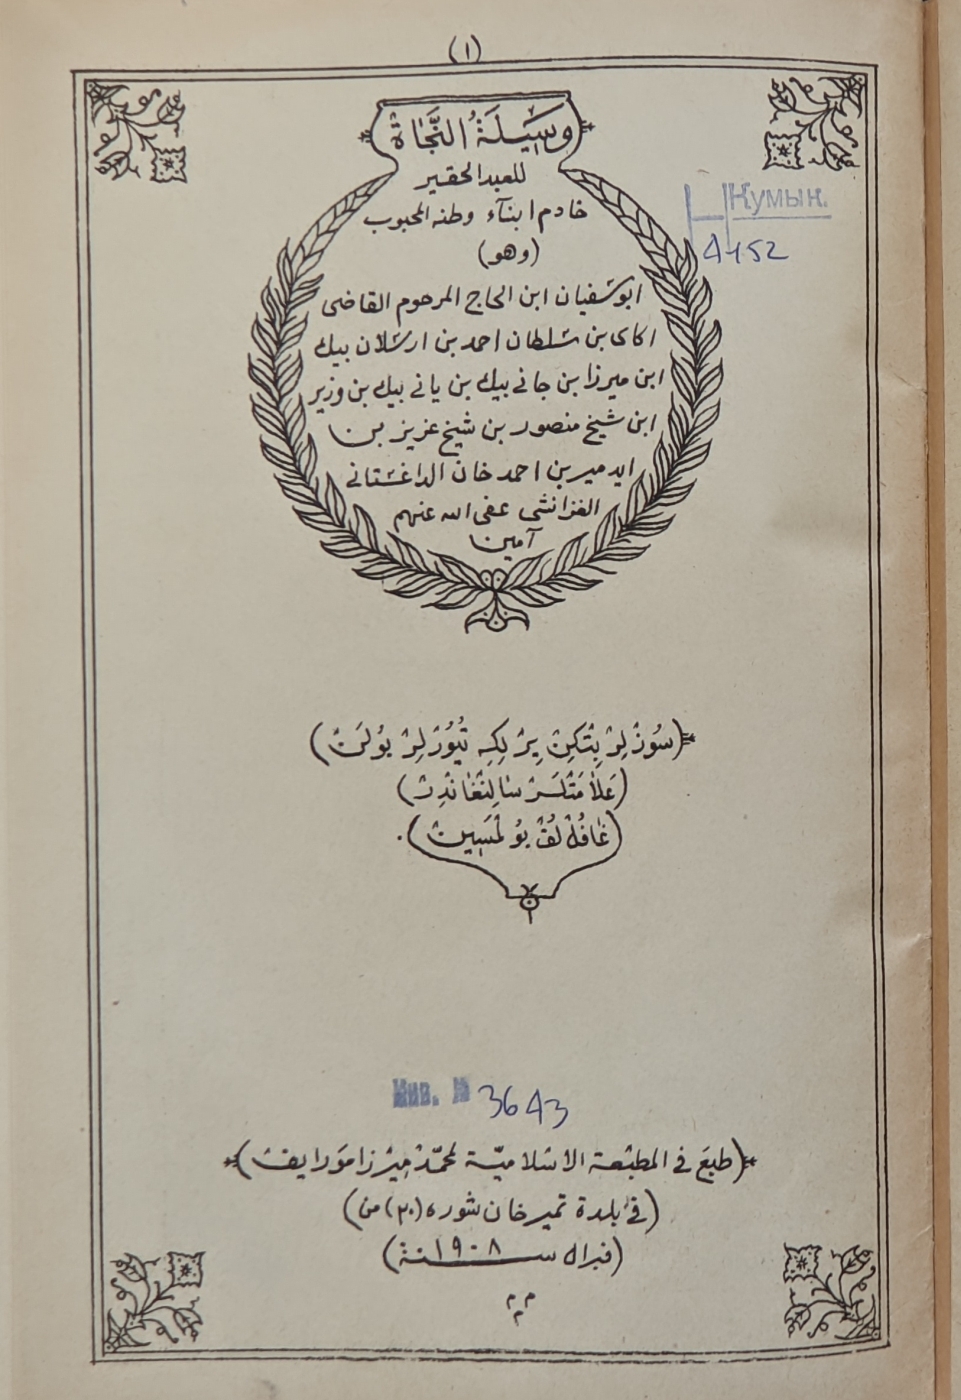 (١)
وَسِيلَةُ النَّجَاةْ
للعبد الحقير
خادم ابنآء وطنه المحبوب
(وهو)
Кумык.
4152
ابوسفيان ابن الحاج المرحوم القاضى
اكاى بن سلطان احمد بن ارسلان بيك
ابن ميرزا بن جانى بيك بن يانى بيك بن وزير
ابن شيخ منصور بن شيخ عزيز بن
ايدمير بن احمد خان الداغستانى
الغزانشى عفى الله عنهم
آمين
(سُوزْلَرْ بِتْكِنْ بِرْلِكِه تُيُورْلِرْ بُولَسَنْ)
(عَلَامَتْلَرْ سَالِنْغَانْدِرْ)
(غَافُلْ لُقْ بُولْمَسِينْ).
Инв. № 3643
(طبعَ فى المطبْعة الاسْلاميّة لمحمّدْ مِيرْزا مَوَرَايفْ)
(فى بلدة تمير خان شوره (٢٠) من)
(فبرال سنة ١٩٠٨)
م م م